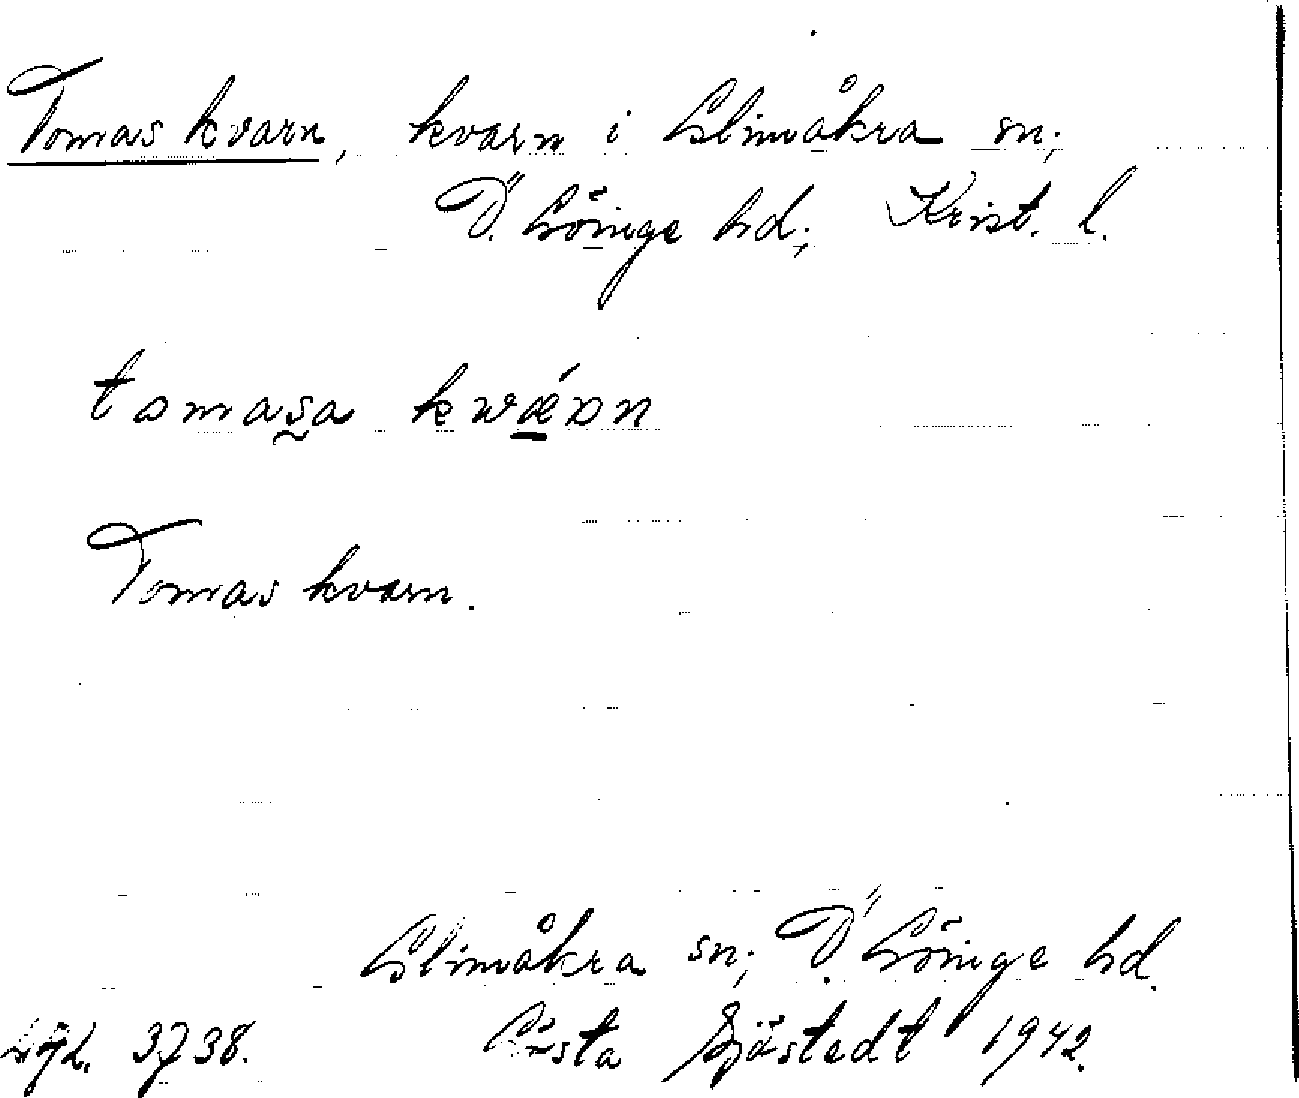 Tomas kvarn, kvarn i Glimåkra sn;
Ö. Göinge hd; Krist. l.
tomasa kwǽʀn
Tomas kvarn.
Glimåkra sn; Ö. Göinge hd.
3J38. Gösta Sjöstedt 1942.